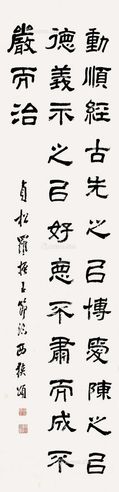 動順經古先之㠯博愛陳之㠯
德義示之㠯好惡不肅而成不
嚴而治
貞松羅振玉節臨西狹頌